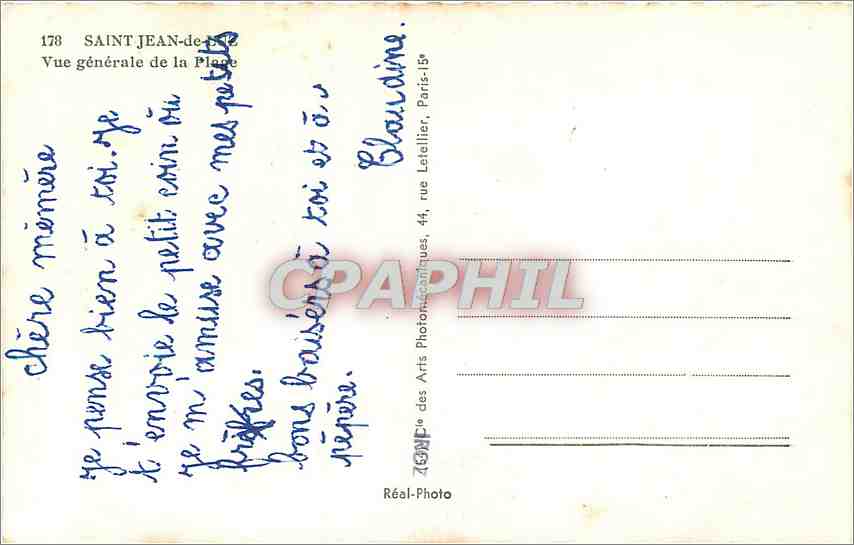 178 SAINT JEAN-de-LUZ
Vue générale de la Plage
chère mémère
je pense bien à toi. je
t'envoie le petit coin où
je m'amuse avec mes petits
frères.
bons baisers à toi et à
pépère.
Claudine.
Cie des Arts Photomécaniques, 44, rue Letellier, Paris-15e
CPAPHIL
Réal-Photo